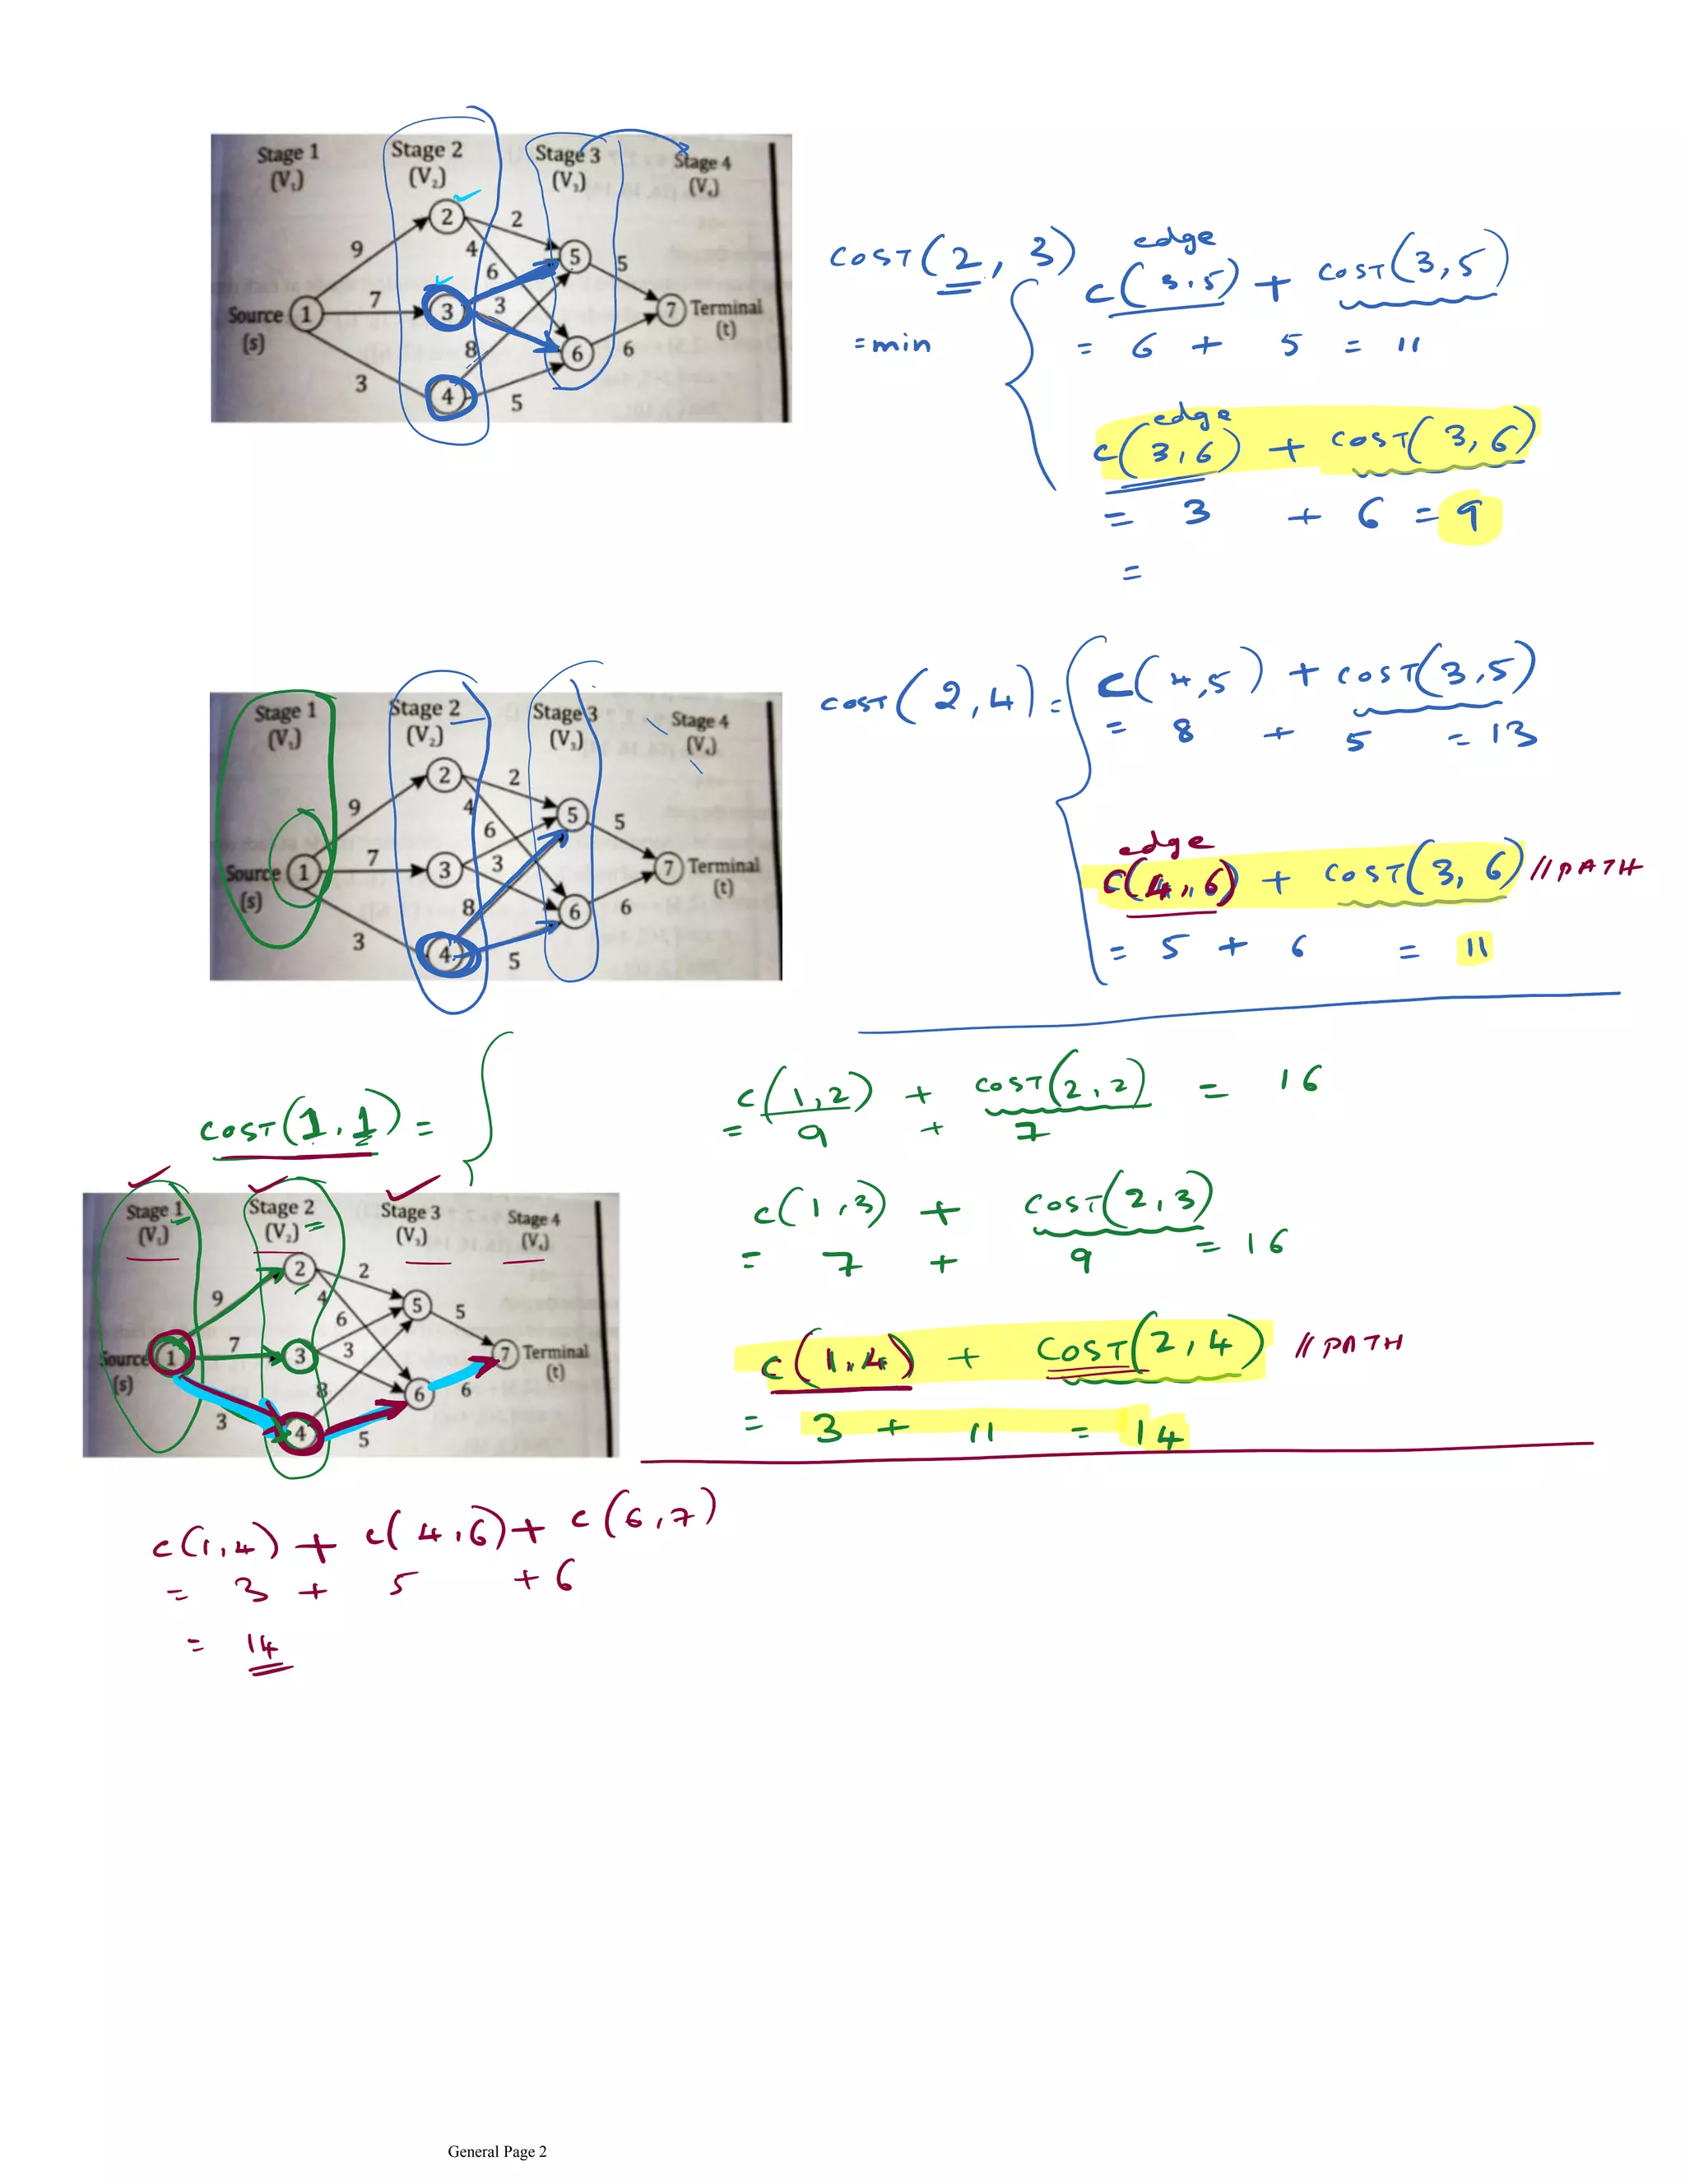 Stage 1 Stage 2 Stage 3 Stage 4
(V₁) (V₂) (V₃) (V₄)
2
2
9 4 5 5
6
Source 1 7 3 3 7 Terminal
(s) (t)
8 6 6
3 4 5
COST(2, 3)
edge
c(3,5) + COST(3,5)
= min
= 6 + 5 = 11
edge
c(3,6) + COST(3,6)
= 3 + 6 = 9
=
Stage 1 Stage 2 Stage 3 Stage 4
(V₁) (V₂) (V₃) (V₄)
2
2
9 4 5 5
6
Source 1 7 3 3 7 Terminal
(s) (t)
8 6 6
3 4 5
COST(2,4) =
c(4,5) + COST(3,5)
= 8 + 5 = 13
edge
c(4,6) + COST(3,6) // PATH
= 5 + 6 = 11
COST(1,1) =
c(1,2) + COST(2,2) = 16
= 9 + 7
c(1,3) + COST(2,3)
= 7 + 9 = 16
c(1,4) + COST(2,4) // PATH
= 3 + 11 = 14
Stage 1 Stage 2 Stage 3 Stage 4
(V₁) (V₂) (V₃) (V₄)
2
2
9 4 5 5
6
Source 1 7 3 3 7 Terminal
(s) (t)
8 6 6
3 4 5
c(1,4) + c(4,6) + c(6,7)
= 3 + 5 + 6
= 14
General Page 2